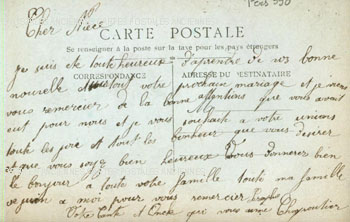 Cher Nièce
CARTE POSTALE
Se renseigner à la poste sur la taxe pour les pays étrangers
CORRESPONDANCE ADRESSE DU DESTINATAIRE
Je suis toute heureux d'aprendre de vos bonne
nouvelle surtout votre prochaine mariage et je viens
vous remercier de la bonne attentions que vous avait
eut pour nous et je vous souhait a votre unions
toute les joie et tout les bonheur que vous désirer
et que vous soyez bien heureux Vous donnerez bien
le bonjour a toute votre famille toute ma famille
se join a moi pour vous remercier
Votre Tante et Oncle qui vous aime